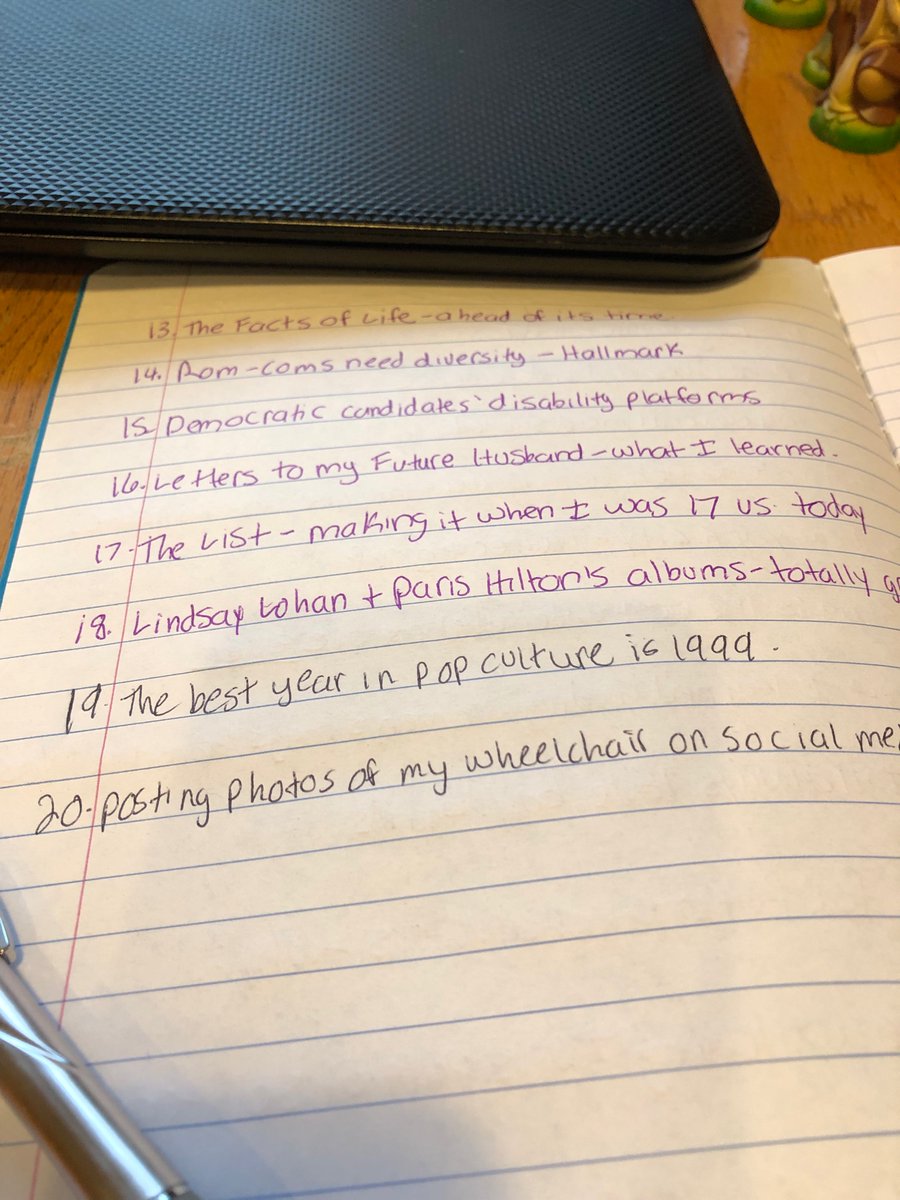 13. The Facts of Life - ahead of its time.
14. Rom-coms need diversity - Hallmark
15. Democratic candidates' disability platforms
16. Letters to my Future Husband - what I learned.
17. The List - making it when I was 17 vs. today
18. Lindsay Lohan + Paris Hilton's albums - totally
19. The best year in pop culture is 1999.
20. posting photos of my wheelchair on social